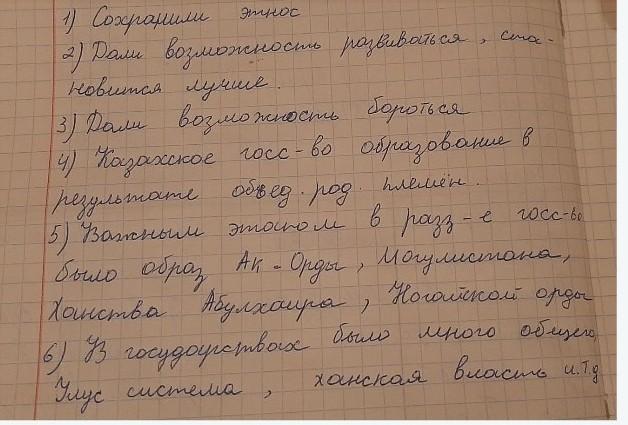 1) Сохранили этнос
2) Дали возможность развиваться, ста-
новится лучше.
3) Дали возможность бороться
4) Казахское госс-во образование в
результате объед. род. племён.
5) Важным этапом в разз-е госс-во
было образ. Ак-Орды, Могулистана,
Ханства Абулхаира, Ногайской орды
6) В государствах было много общего,
Улус система, ханская власть и.т.д